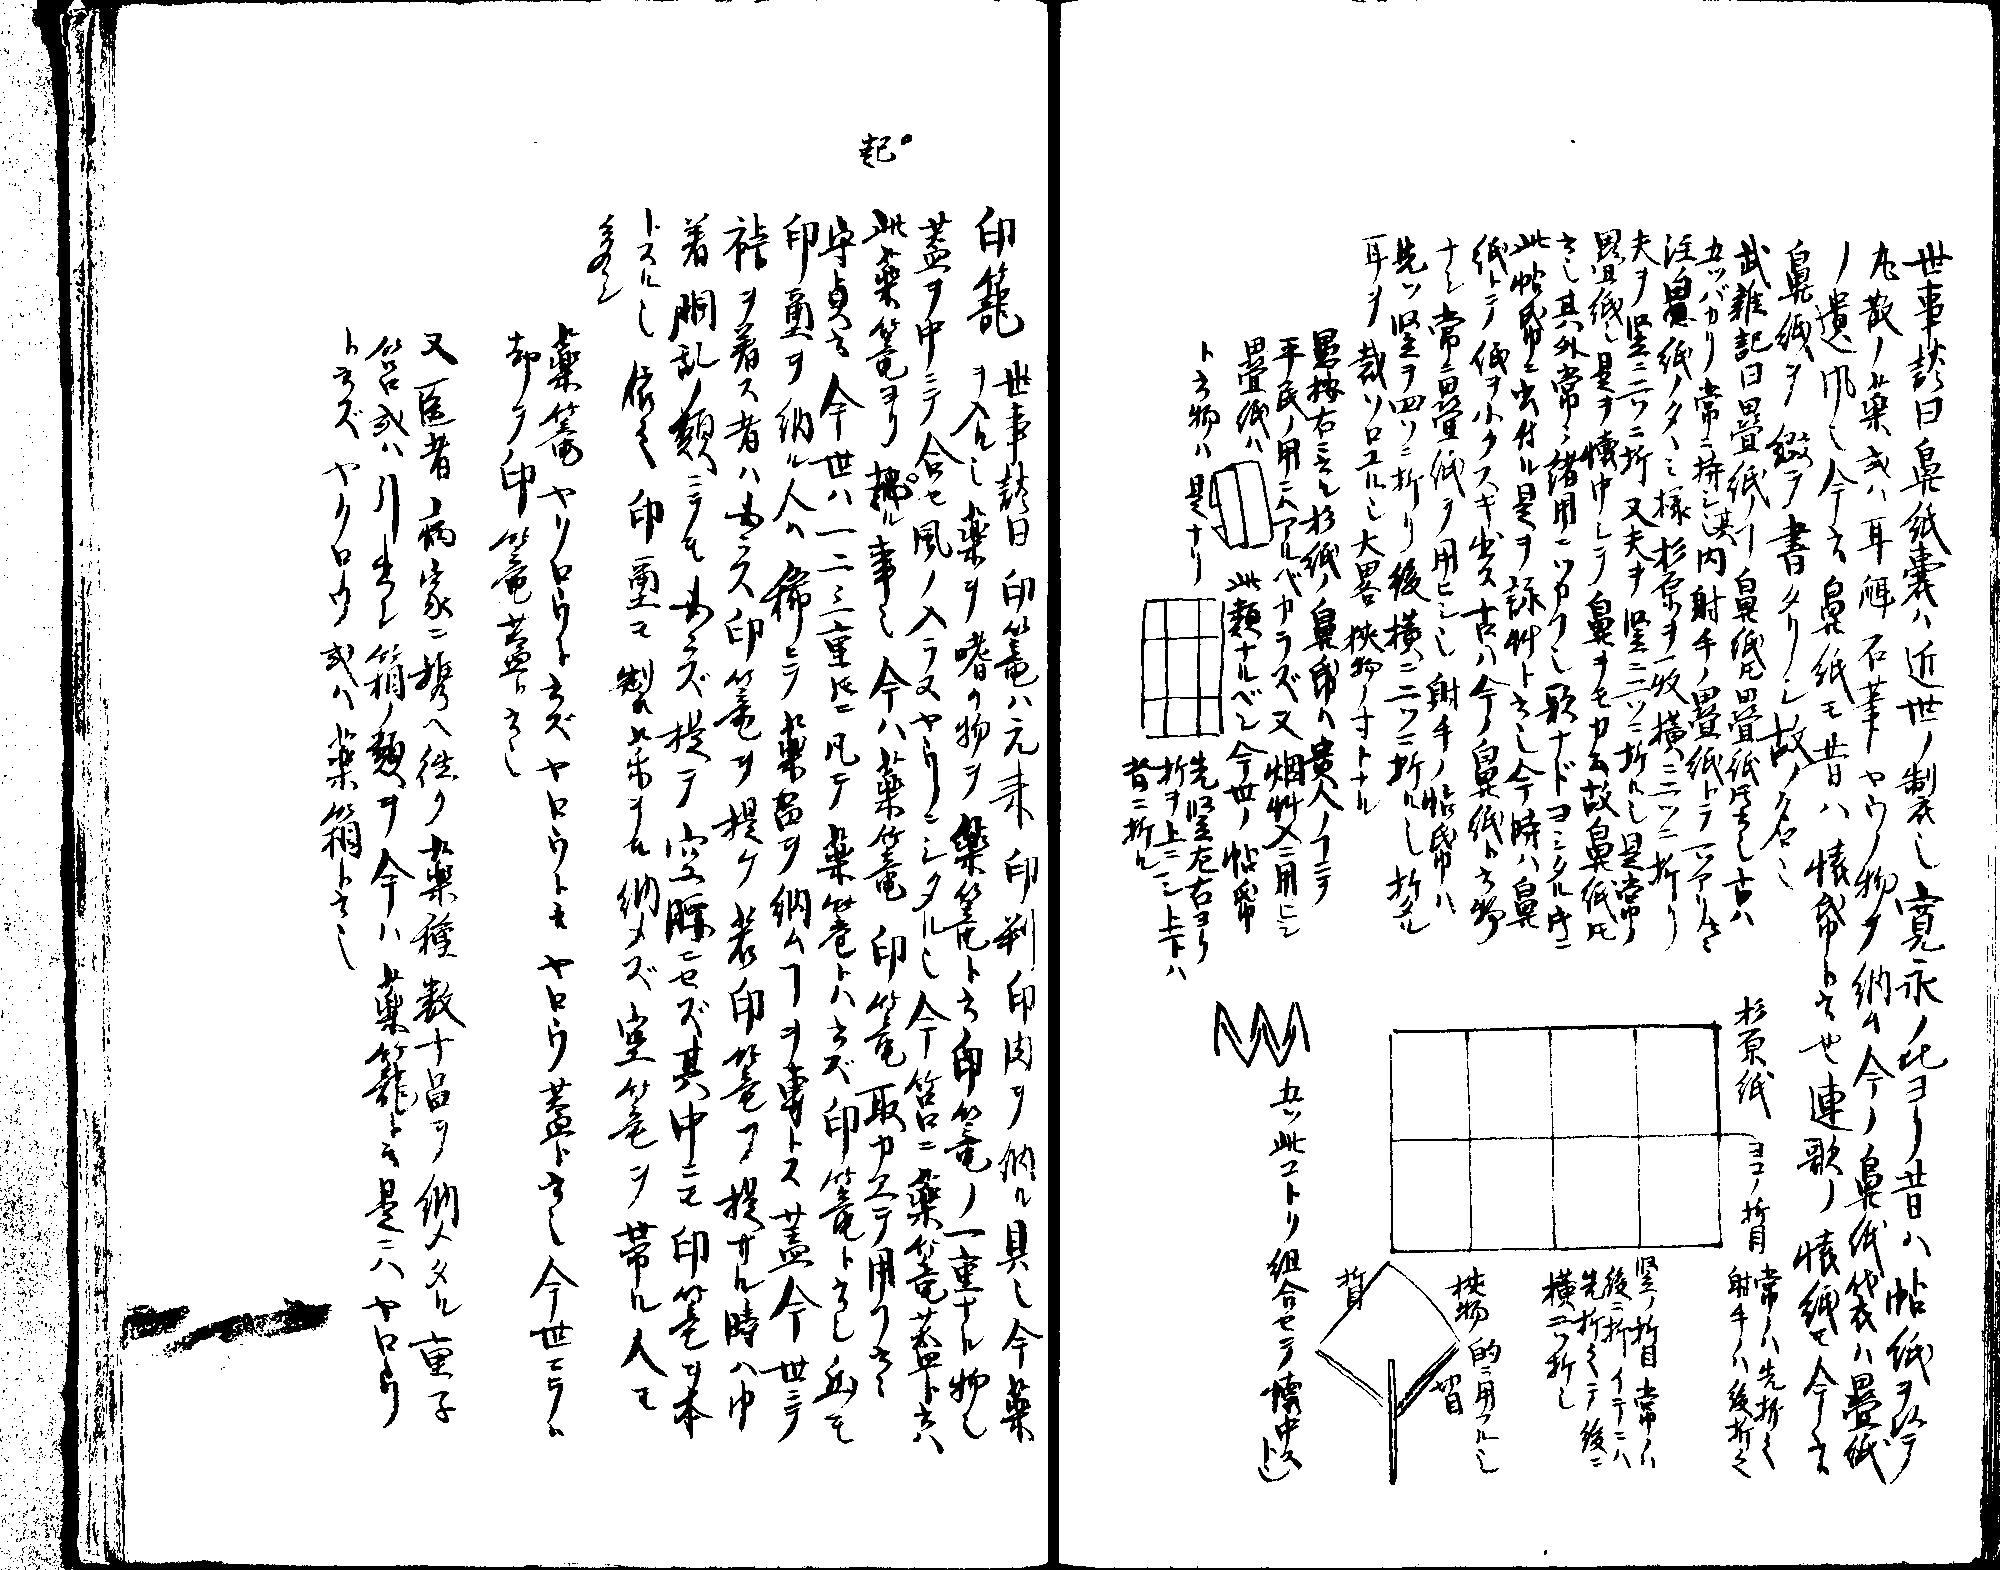 世事談曰鼻紙嚢ハ近世ノ制衣也寛永ノ比ヨリ昔ハ帖紙ヲ以テ
丸散ノ薬或ハ耳解石筆ヤウノ物ヲ納ム今ノ鼻紙袋ハ畳紙
ノ遺風也今云鼻紙モ昔ハ懐帋ト云也連歌ノ懐紙モ今云
鼻紙ヲ綴テ書タリシ故ノ名也
武雑記曰畳紙ノ鼻紙氏畳紙氏云也古ハ
五ツバカリ常ニ持シ其内射手ノ畳紙トテ一ツアリ
注鼻紙ノタヽミ様杉原ヲ一枚横ニ三ツニ折リ
夫ヲ竪ニ二ツニ折又夫ヲ竪ニ二ツニ折ル也是常ノ
畳紙也是ヲ懐中シテ鼻ヲモカム故鼻紙氏
云也其外常ニ諸用ニツカフ也歌ナドヨミタル時ニ
此帖帋ニ書付ル是ヲ詠艸ト云也今時ハ鼻
紙トテ紙ヲ小クスキ出ス古ハ今ノ鼻紙ト云物
ナシ常ニ畳紙ヲ用ヒシ也射手ノ帖帋ハ
先ツ竪ヲ四ツニ折リ後横ニ二ツニ折ル也折タル
耳ヲ裁ソロエル也大畧挟物ノ寸トナル
愚按右ニ云ル杉紙ノ鼻帋ハ貴人ノ
平民ノ用ニハアルベカラズ又烟艸入ニ用ヒシ
畳紙ハ此類ナルベシ今世ノ帖帋
ト云物ハ是ナリ
先竪左右ヨリ
折ヲ上ニシ上下ハ
背ニ折ル
杉原紙
ヨコノ折目
常ノハ先折
射手ノハ後折
竪ノ折目常ノハ
後ニ折イテニハ
先折ミテ後ニ
横二ツ折也
挟物的ニ用フル也
折目
五ツ此コトク組合セテ懐中ス
起
印籠世事談曰印篭ハ元来印判印肉ヲ納ル具也今薬
ヲ入ル也薬ヲ嗜ク物ヲ薬篭ト云印篭ノ一重ナル物也
蓋ヲ中ニテ合セ風ノ入ラヌヤウニシタル也今筥ニ薬篭蓋ト云ハ
此薬篭ヨリ起ル事也今ハ薬篭印篭取カエテ用フ云々
守貞云今世ハ一二三重氏ニ凡テ薬篭トハ云ズ印篭ト云也
印重ヲ納ル人ハ稀ニテ薬品ヲ納ムヿヲ専トス蓋今世ニテ
袴ヲ着ス者ハ必ラス印篭ヲ提ケ若印篭ヲ提ザル時ハ巾
着胴乱ノ類ニテモ必ラズ提テ空腰ニセズ其中ニモ印篭ヲ本
トスル也依之印重モ製薬ヲモ納メズ空篭ヲ帯ル人モ
多シ
薬篭ヤクロウト云ズヤロウト云ヤロウ蓋ト云也今世ニテハ
却テ印篭蓋ト云也
又医者病家ニ携ヘ徃ク薬種数十品ヲ納メタル重子
筥或ハ引出シ箱ノ類ヲ今ハ薬籠ト云是ニハヤロウ
ト云ズヤクロウ或ハ薬箱ト云也